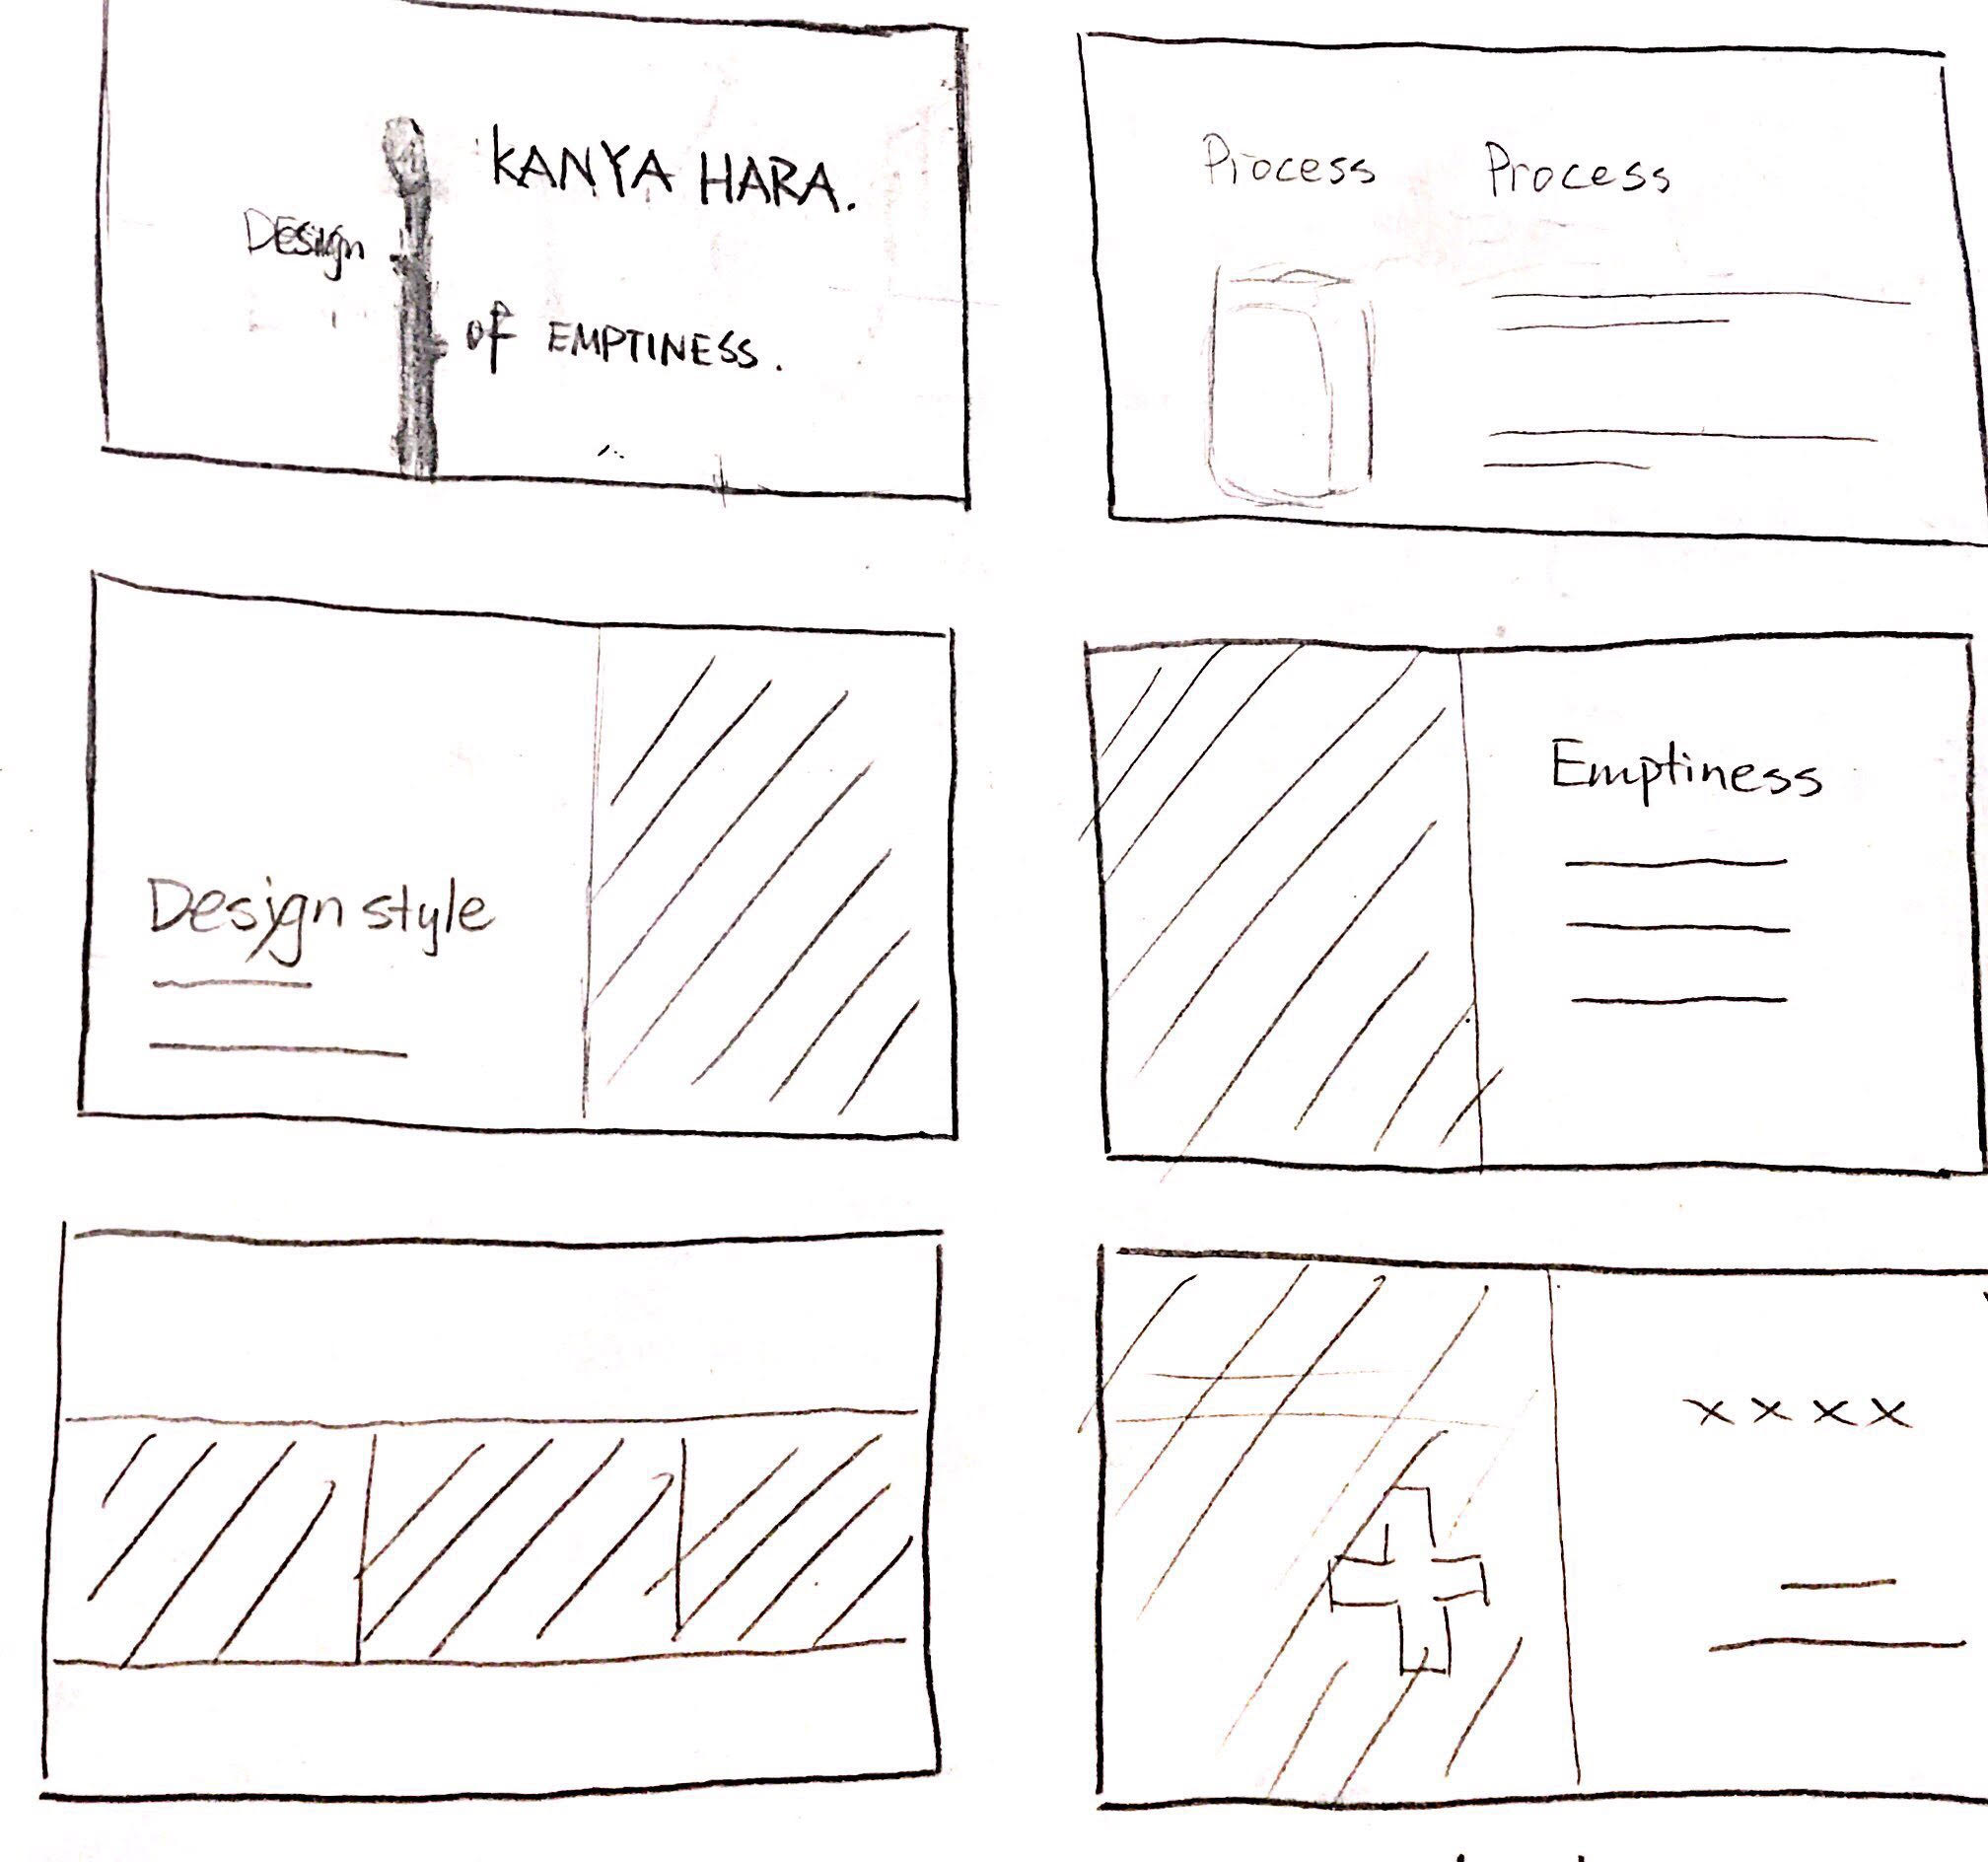 KANYA HARA.
Design
of EMPTINESS.
Process Process
Design style
Emptiness
xxxx